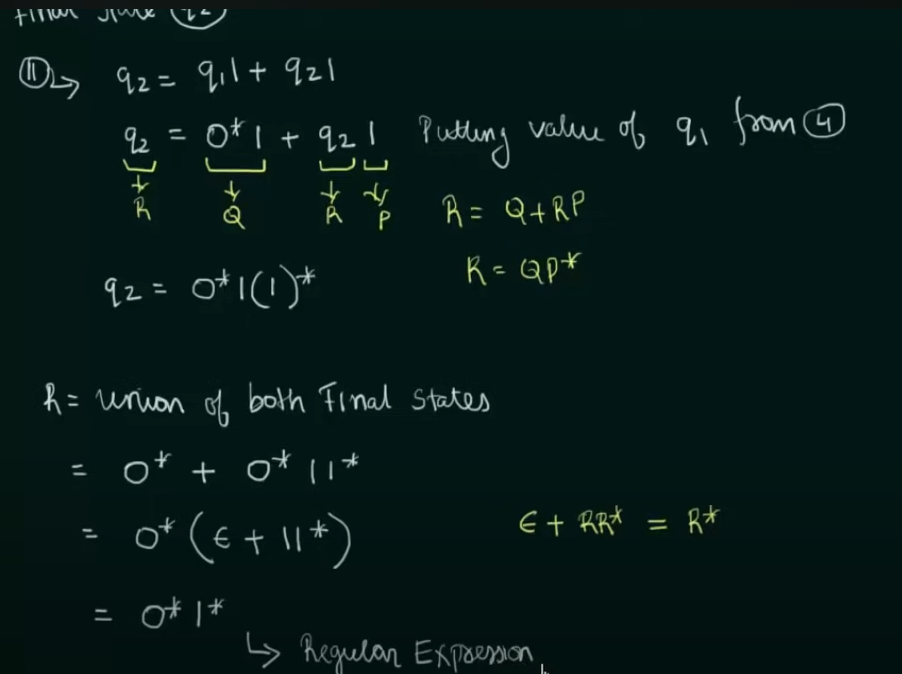 Final State q2
⑪↳ q2 = q11 + q21
q2 = 0*1 + q21 Putting value of q1 from ④
R Q R P R = Q+RP
R = QP*
q2 = 0*1(1)*
R = union of both Final States
= 0* + 0*11*
= 0*(ϵ + 11*) ϵ + RR* = R*
= 0*1*
↳ Regular Expression